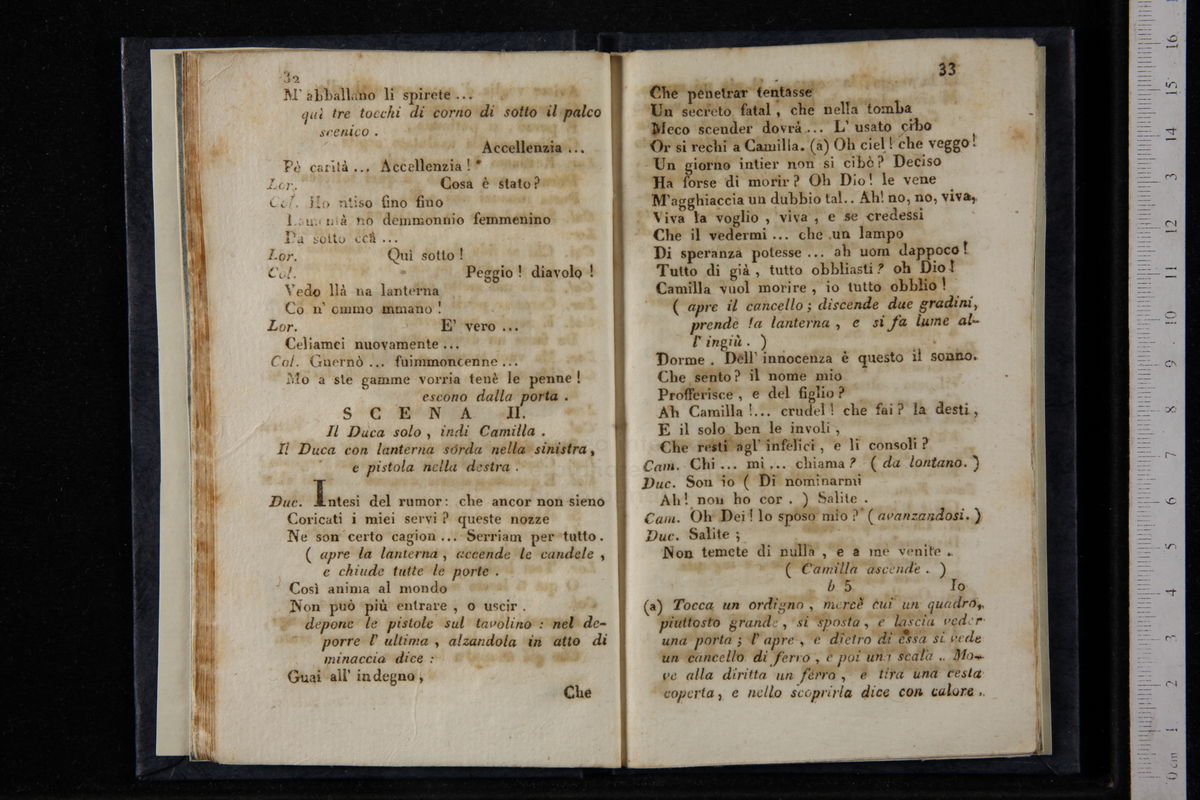 32
M' abballano li spirete ...
qui tre tocchi di corno di sotto il palco
scenico .
Accellenzia ...
Pè carità ... Accellenzia !
Lor. Cosa è stato ?
Col. Ho ntiso fino fino
Lamentà no demmonnio femmenino
Da sotto ccà ...
Lor. Quì sotto !
Col. Peggio ! diavolo !
Vedo llà na lanterna
Co n' ommo mmano !
Lor. E' vero ...
Celiamci nuovamente ...
Col. Gnernò ... fuimmoncenne ...
Mo a ste gamme vorria tenè le penne !
escono dalla porta .
S C E N A II.
Il Duca solo , indi Camilla .
Il Duca con lanterna sorda nella sinistra ,
e pistola nella destra .
Duc. Intesi del rumor : che ancor non sieno
Coricati i miei servi ? queste nozze
Ne son certo cagion ... Serriam per tutto .
( apre la lanterna , accende le candele ,
e chiude tutte le porte .
Così anima al mondo
Non può più entrare , o uscir .
depone le pistole sul tavolino : nel de-
porre l' ultima , alzandola in atto di
minaccia dice :
Guai all' indegno ,
Che
33
Che penetrar tentasse
Un secreto fatal , che nella tomba
Meco scender dovrà ... L' usato cibo
Or si rechi a Camilla. (a) Oh ciel ! che veggo !
Un giorno intier non si cibò ? Deciso
Ha forse di morir ? Oh Dio ! le vene
M'agghiaccia un dubbio tal .. Ah! no, no, viva,
Viva la voglio , viva , e se credessi
Che il vedermi ... che un lampo
Di speranza potesse ... ah uom dappoco !
Tutto di già , tutto obbliasti ? oh Dio !
Camilla vuol morire , io tutto obblio !
( apre il cancello ; discende due gradini ,
prende la lanterna , e si fa lume al-
l' ingiù . )
Dorme . Dell' innocenza è questo il sonno .
Che sento ? il nome mio
Profferisce , e del figlio ?
Ah Camilla ! ... crudel ! che fai ? la desti ,
E il solo ben le involi ,
Che resti agl' infelici , e li consoli ?
Cam. Chi ... mi ... chiama ? ( da lontano. )
Duc. Son io ( Di nominarmi
Ah ! non ho cor . ) Salite .
Cam. Oh Dei ! lo sposo mio ? ( avanzandosi. )
Duc. Salite ;
Non temete di nulla , e a me venite .
( Camilla ascende . )
b 5 Io
(a) Tocca un ordigno , mercè cui un quadro ,
piuttosto grande , si sposta , e lascia veder
una porta ; l' apre , e dietro di essa si vede
un cancello di ferro , e poi una scala .. Mo-
ve alla diritta un ferro , e tira una cesta
coperta , e nello scoprirla dice con calore .
16
15
14
13
12
11
10
9
8
7
6
5
4
3
2
1
0 cm